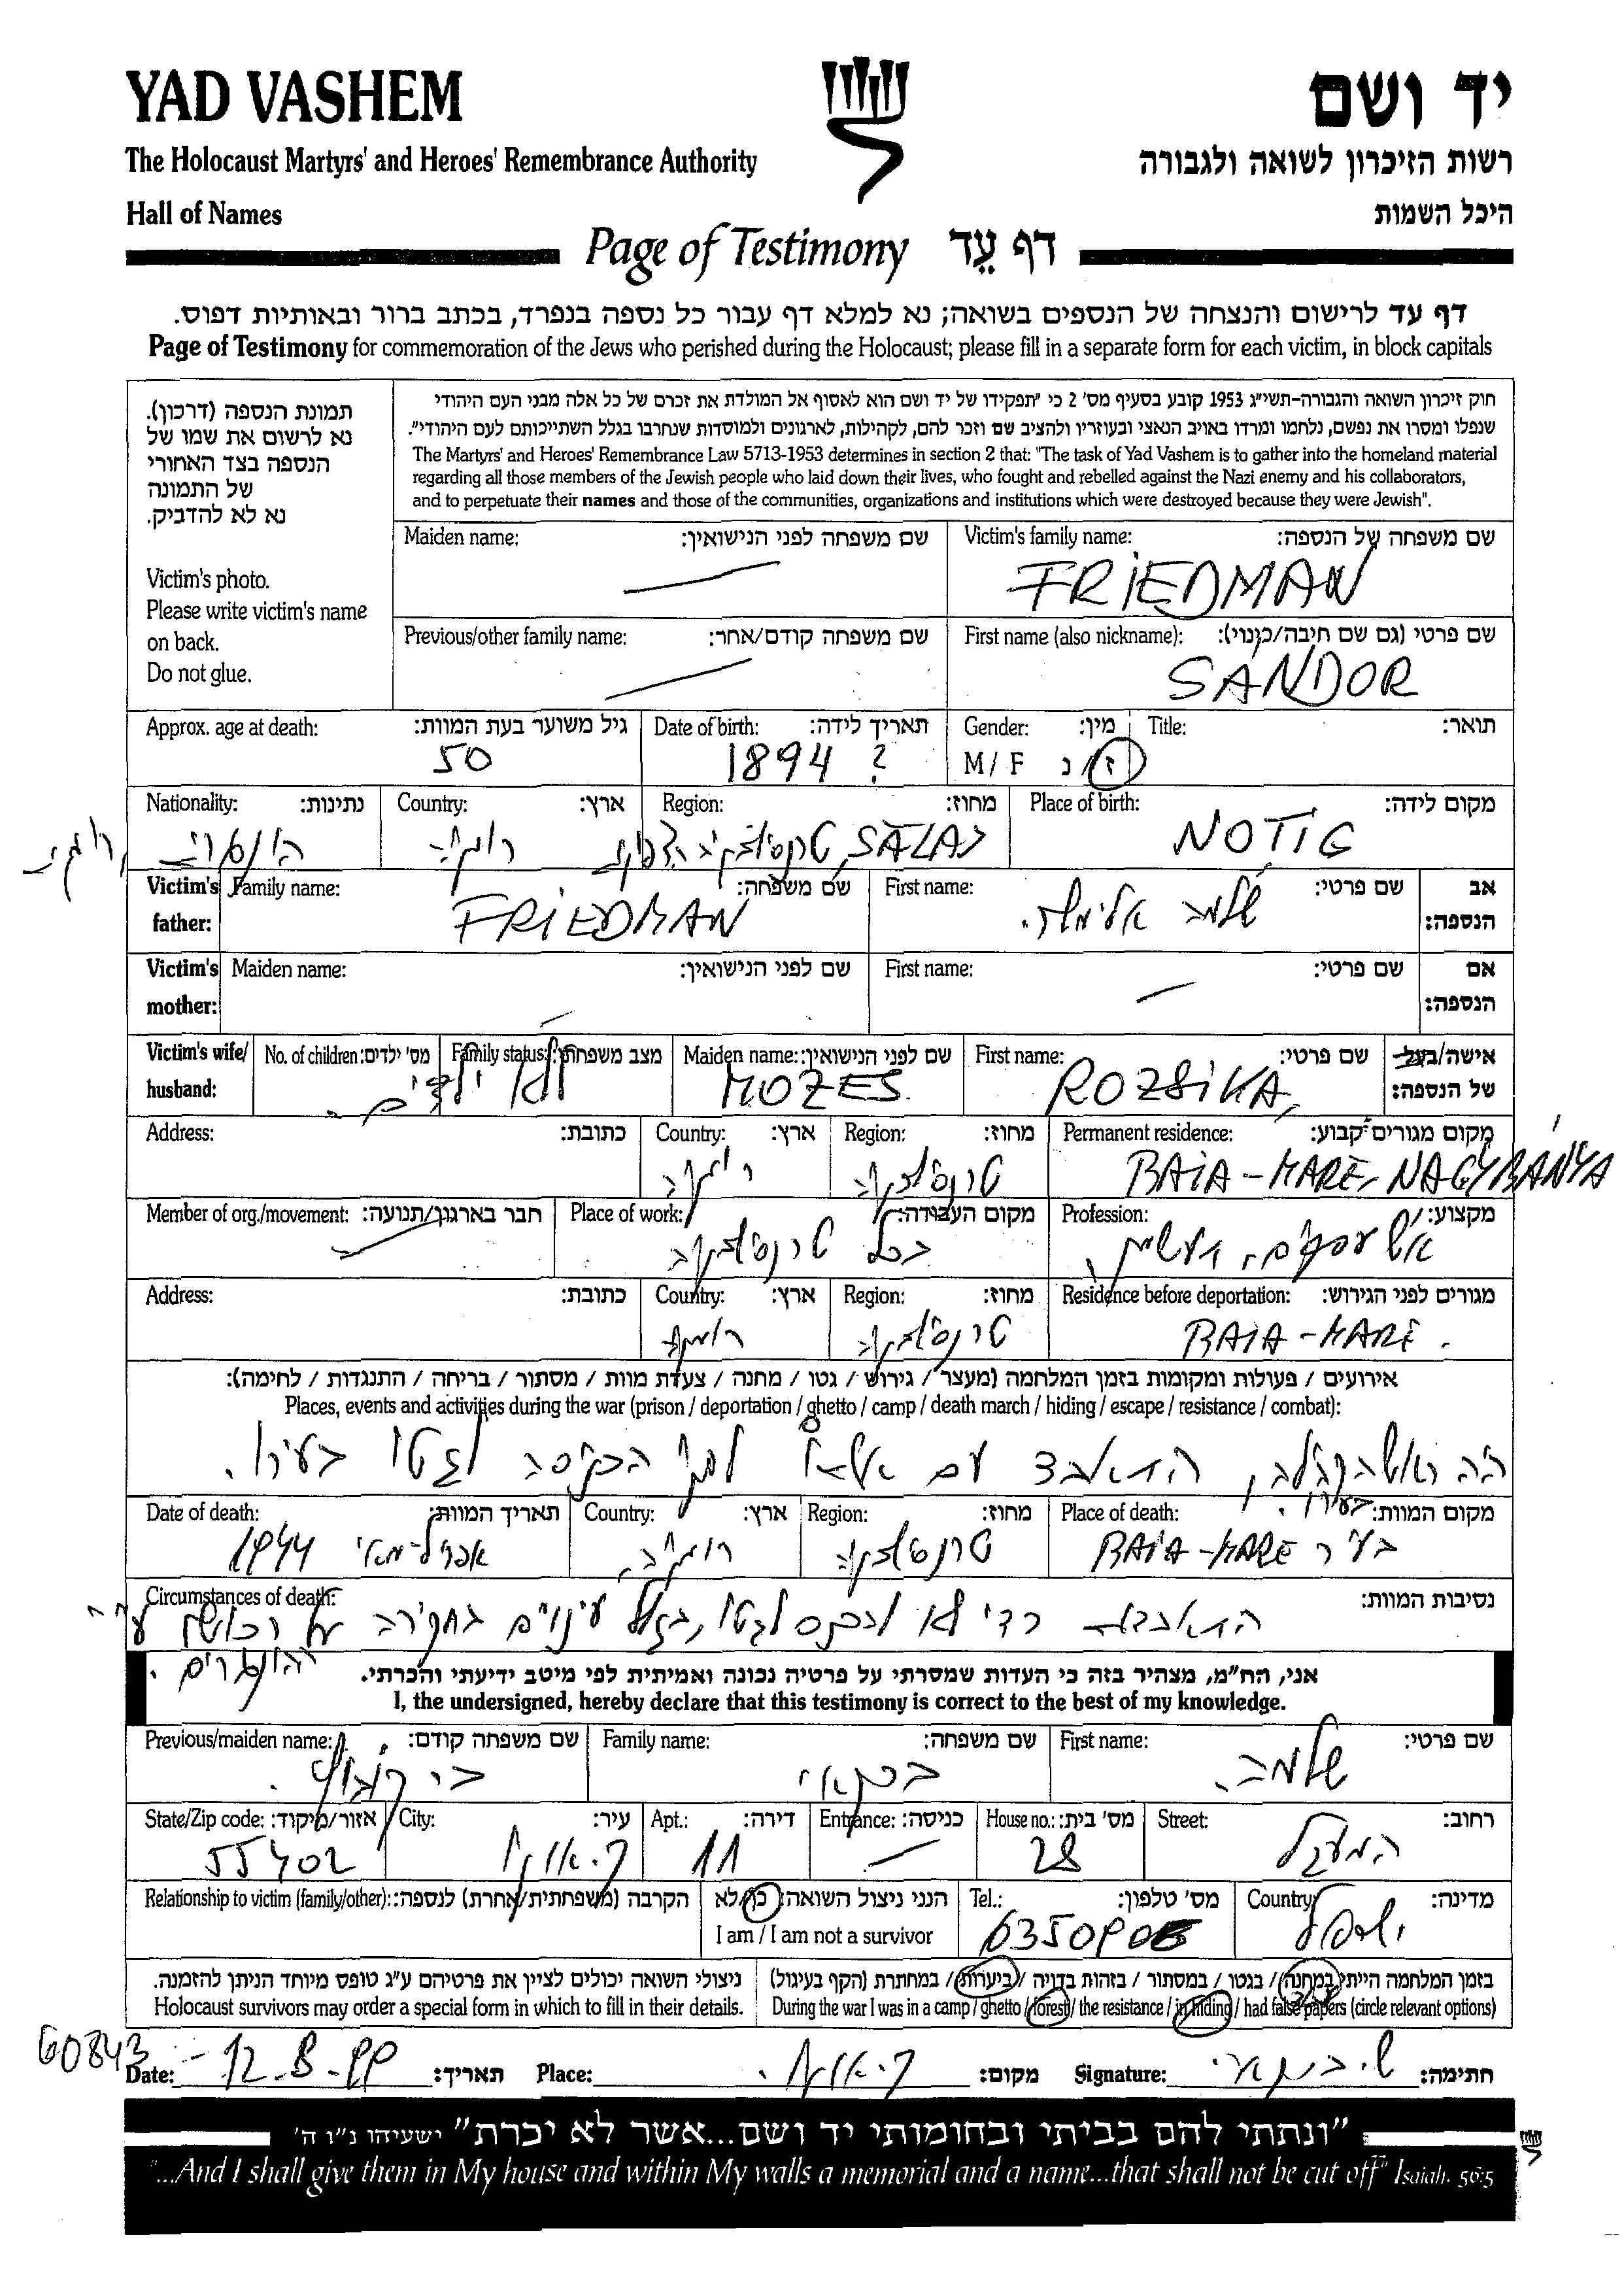 YAD VASHEM
יד ושם
The Holocaust Martyrs' and Heroes' Remembrance Authority
רשות הזיכרון לשואה ולגבורה
Hall of Names
היכל השמות
Page of Testimony דף עֵד
דף עד לרישום והנצחה של הנספים בשואה; נא למלא דף עבור כל נספה בנפרד, בכתב ברור ובאותיות דפוס.
Page of Testimony for commemoration of the Jews who perished during the Holocaust; please fill in a separate form for each victim, in block capitals
תמונת הנספה (דרכון).
נא לרשום את שמו של
הנספה בצד האחורי
של התמונה
נא לא להדביק.
Victim's photo.
Please write victim's name
on back.
Do not glue.
חוק זיכרון השואה והגבורה-תשי"ג 1953 קובע בסעיף מס' 2 כי "תפקידו של יד ושם הוא לאסוף אל המולדת את זכרם של כל אלה מבני העם היהודי
שנפלו ומסרו את נפשם, נלחמו ומרדו באויב הנאצי ובעוזריו ולהציב שם וזכר להם, לקהילות, לארגונים ולמוסדות שנחרבו בגלל השתייכותם לעם היהודי".
The Martyrs' and Heroes' Remembrance Law 5713-1953 determines in section 2 that: "The task of Yad Vashem is to gather into the homeland material
regarding all those members of the Jewish people who laid down their lives, who fought and rebelled against the Nazi enemy and his collaborators,
and to perpetuate their names and those of the communities, organizations and institutions which were destroyed because they were Jewish".
Maiden name: שם משפחה לפני הנישואין:
Victim's family name: שם משפחה של הנספה:
FRIEDMAN
Previous/other family name: שם משפחה קודם/אחר:
First name (also nickname): שם פרטי (גם שם חיבה/כינוי):
SANDOR
Approx. age at death: גיל משוער בעת המוות:
50
Date of birth: תאריך לידה:
1894 ?
Gender: מין:
M / F ז / נ
Title: תואר:
Nationality: נתינות:
Country: ארץ:
רומניה
Region: מחוז:
טרנסילבניה SĂLAJ
Place of birth: מקום לידה:
NOTIG
Victim's father: Family name: שם משפחה:
FRIEDMAN
First name: שם פרטי:
שלמה אלימלך.
אב הנספה:
Victim's mother: Maiden name: שם לפני הנישואין:
First name: שם פרטי:
אם הנספה:
Victim's wife/ husband: No. of children: מס' ילדים:
Family status: מצב משפחתי:
ללא ילדים.
Maiden name: שם לפני הנישואין:
MOZES
First name: שם פרטי:
ROZSIKA
אישה/בעל של הנספה:
Address: כתובת:
Country: ארץ:
רומניה
Region: מחוז:
טרנסילבניה
Permanent residence: מקום מגורים קבוע:
BAIA-MARE, NAGYBÁNYA
Member of org./movement: חבר בארגון/תנועה:
Place of work: מקום העבודה:
בכל טרנסילבניה
Profession: מקצוע:
איש עסקים, תעשיין
Address: כתובת:
Country: ארץ:
רומניה
Region: מחוז:
טרנסילבניה
Residence before deportation: מגורים לפני הגירוש:
BAIA-MARE.
אירועים / פעולות ומקומות בזמן המלחמה (מעצר / גירוש / גטו / מחנה / צעדת מוות / מסתור / בריחה / התנגדות / לחימה):
Places, events and activities during the war (prison / deportation / ghetto / camp / death march / hiding / escape / resistance / combat):
היה ראש הקהילה, התאבד עם אשתו לפני הכניסה לגטו בעירו.
Date of death: תאריך המוות:
אפריל-מאי 1944
Country: ארץ:
רומניה
Region: מחוז:
טרנסילבניה
Place of death: מקום המוות:
בעיר BAIA-MARE
Circumstances of death: נסיבות המוות:
התאבדות כדי לא להכנס לגטו, בגלל עינויים בחקירה על רכושו ע"י
ההונגרים.
אני, הח"מ, מצהיר בזה כי העדות שמסרתי על פרטיה נכונה ואמיתית לפי מיטב ידיעתי והכרתי.
I, the undersigned, hereby declare that this testimony is correct to the best of my knowledge.
Previous/maiden name: שם משפחה קודם:
Family name: שם משפחה:
First name: שם פרטי:
שלמה.
State/Zip code: אזור/מיקוד:
55402
City: עיר:
ק. אונו
Apt.: דירה:
11
Entrance: כניסה:
House no.: מס' בית:
28
Street: רחוב:
המעגל
Relationship to victim (family/other): הקרבה (משפחתית/אחרת) לנספה:
הנני ניצול השואה: כן/לא
I am / I am not a survivor
Tel.: מס' טלפון:
Country: מדינה:
ישראל
ניצולי השואה יכולים לציין את פרטיהם ע"ג טופס מיוחד הניתן להזמנה.
Holocaust survivors may order a special form in which to fill in their details.
בזמן המלחמה הייתי במחנה / בגטו / במסתור / בזהות בדויה / ביערות / במחתרת (הקף בעיגול)
During the war I was in a camp / ghetto / forest / the resistance / in hiding / had false papers (circle relevant options)
60843
Date: 12.8.99 תאריך:
Place: ק. אונו. מקום:
Signature: חתימה:
"ונתתי להם בביתי ובחומותי יד ושם...אשר לא יכרת" ישעיהו נ"ו ה'
"...And I shall give them in My house and within My walls a memorial and a name...that shall not be cut off" Isaiah. 56:5